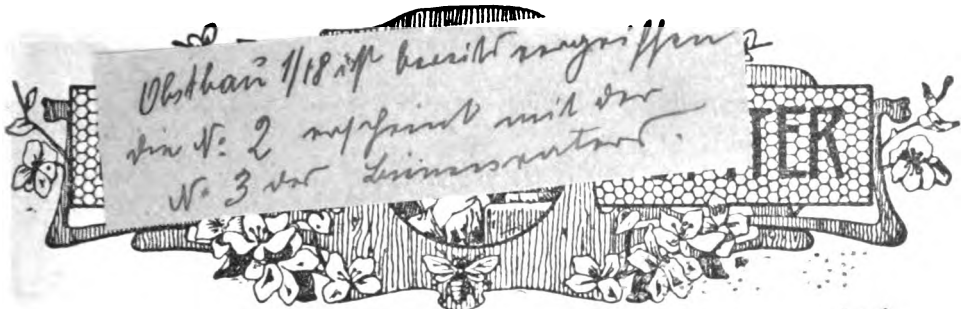 Obstbau 1/18 ist bereits vergriffen
die N: 2 erscheint mit der
N: 3 des Bienenvaters.
TER